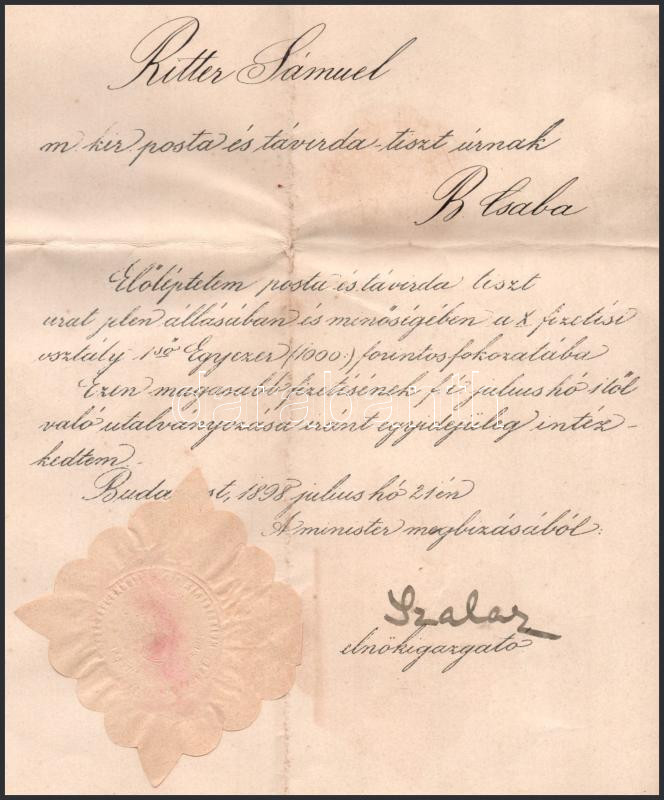 Ritter Sámuel
m. kir. posta és távirda-tiszt úrnak
B Csaba
Előléptetem posta és távirda tiszt
urat jelen állásában és minőségében a X fizetési
osztály 1ső Egyezer (1000.) forintos fokozatába
Ezen magasabb fizetésének f é julius hó 1től
való utalványozása iránt egyidejüleg intéz-
kedtem.
Budapest, 1898 julius hó 21én
A minister megbizásából:
Szalay
elnökigazgató